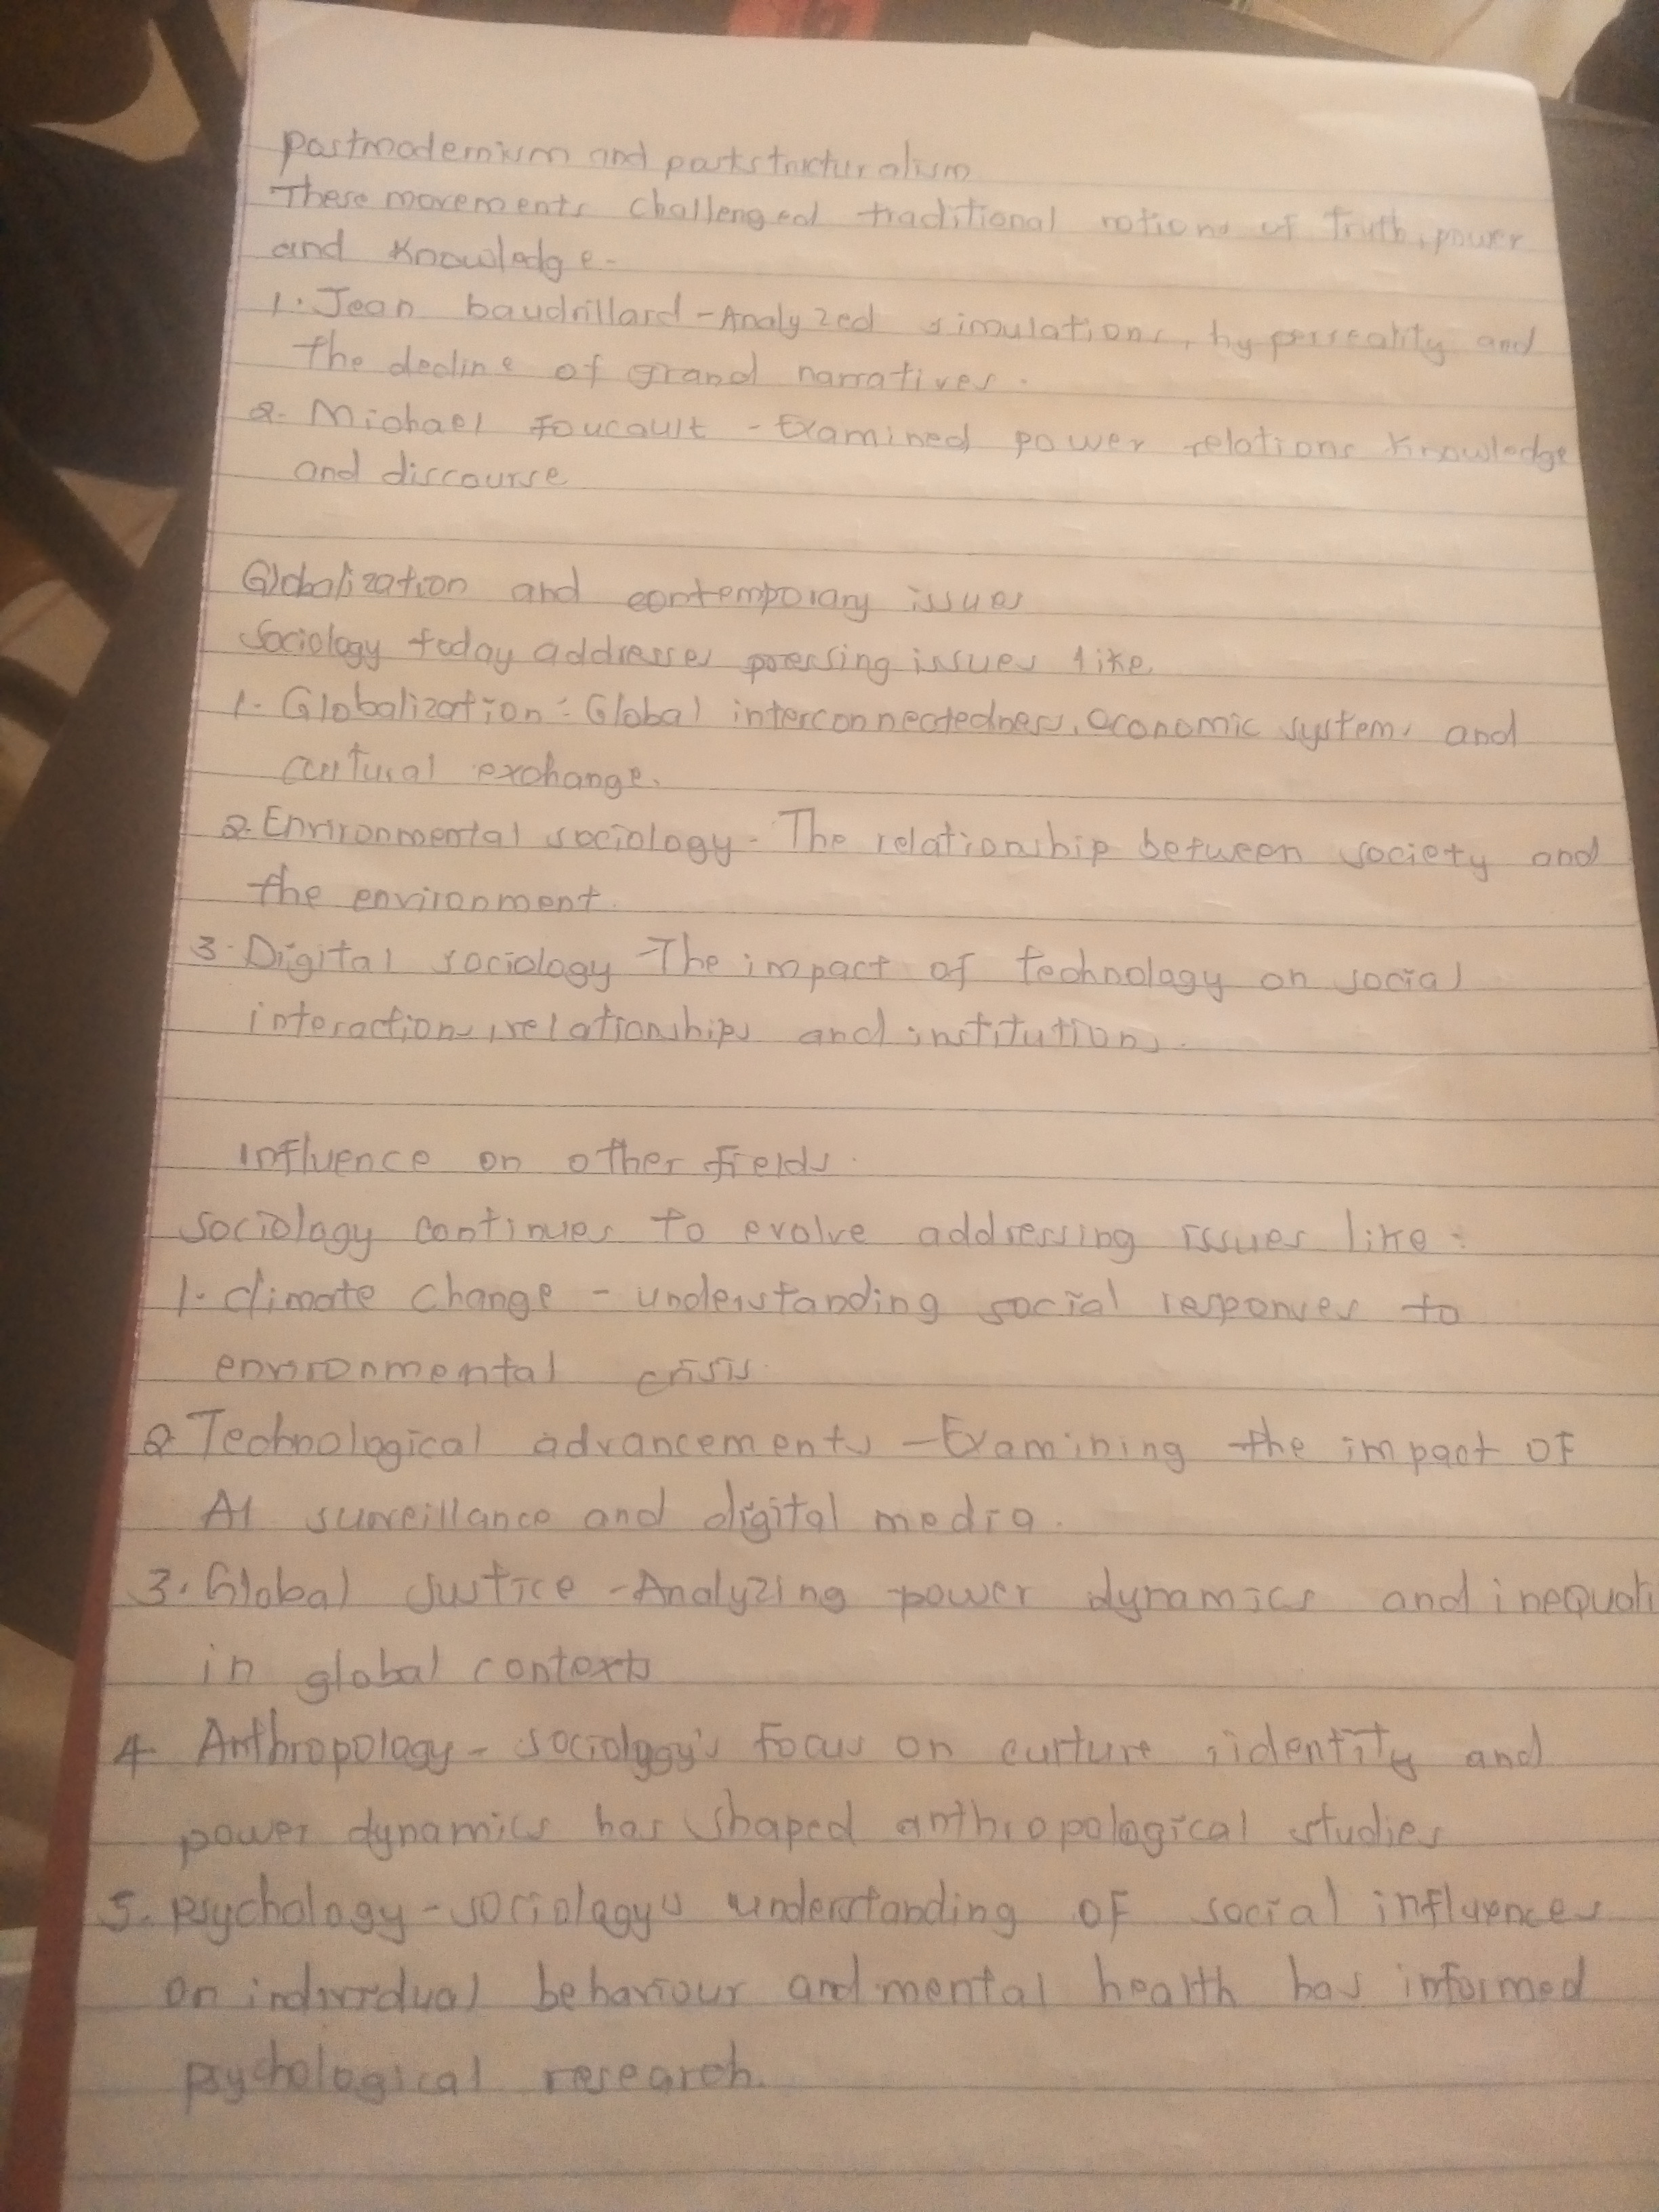 Postmodernism and poststructuralism
These movements challenged traditional notions of truth, power
and knowledge.
1. Jean baudrillard - Analyzed simulations, hyperreality and
the decline of grand narratives.
2. Michael Foucault - Examined power relations knowledge
and discourse
Globalization and contemporary issues
Sociology today addresses pressing issues like
1. Globalization : Global interconnectedness, economic systems and
cultural exchange.
2. Environmental sociology - The relationship between society and
the environment.
3. Digital sociology The impact of technology on social
interactions, relationships and institutions.
Influence on other fields.
Sociology continues to evolve addressing issues like :
1. climate change - understanding social responses to
environmental crisis.
2 Technological advancements - Examining the impact of
AI surveillance and digital media.
3. Global justice - Analyzing power dynamics and inequali
in global contexts
4 Anthropology - sociology's focus on culture, identity and
power dynamics has shaped anthropological studies
5. psychology - sociology's understanding of social influences
on individual behaviour and mental health has informed
psychological research.